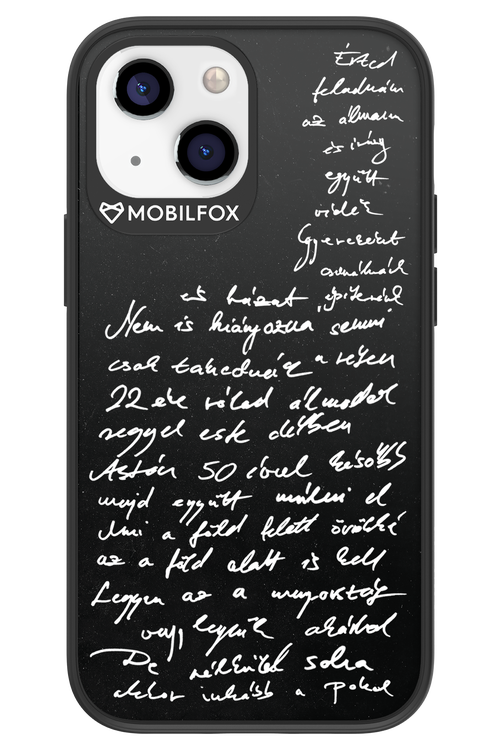 MOBILFOX
Érted
feladnám
az álmom
és így
együtt
vidék
Gyerekeket
csinálnánk
és házat építenénk
Nem is hiányozna semmi
csak takednék a rések
22 éve rólad álmodok
reggel este délben
Aztán 50 évvel később
majd együtt múlni el
Ami a föld felett örökké
az a föld alatt is kell
Legyen az a menyország
vagy legyünk akárhol
De nélküled soha
akkor inkább a Pokol